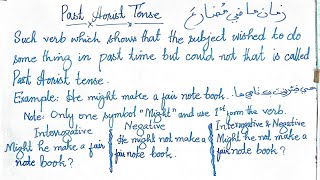 Past Aorist Tense
Such verb which shows that the subject wished to do
some thing in past time but could not that is called
Past Aorist tense.
Example: He might make a fair note book.
Note: Only one symbol "Might" and use 1st form the verb.
Interrogative
Might he make a fair
note book?
Negative
He might not make a
fair note book.
Interrogative & Negative
Might he not make a
fair note book?